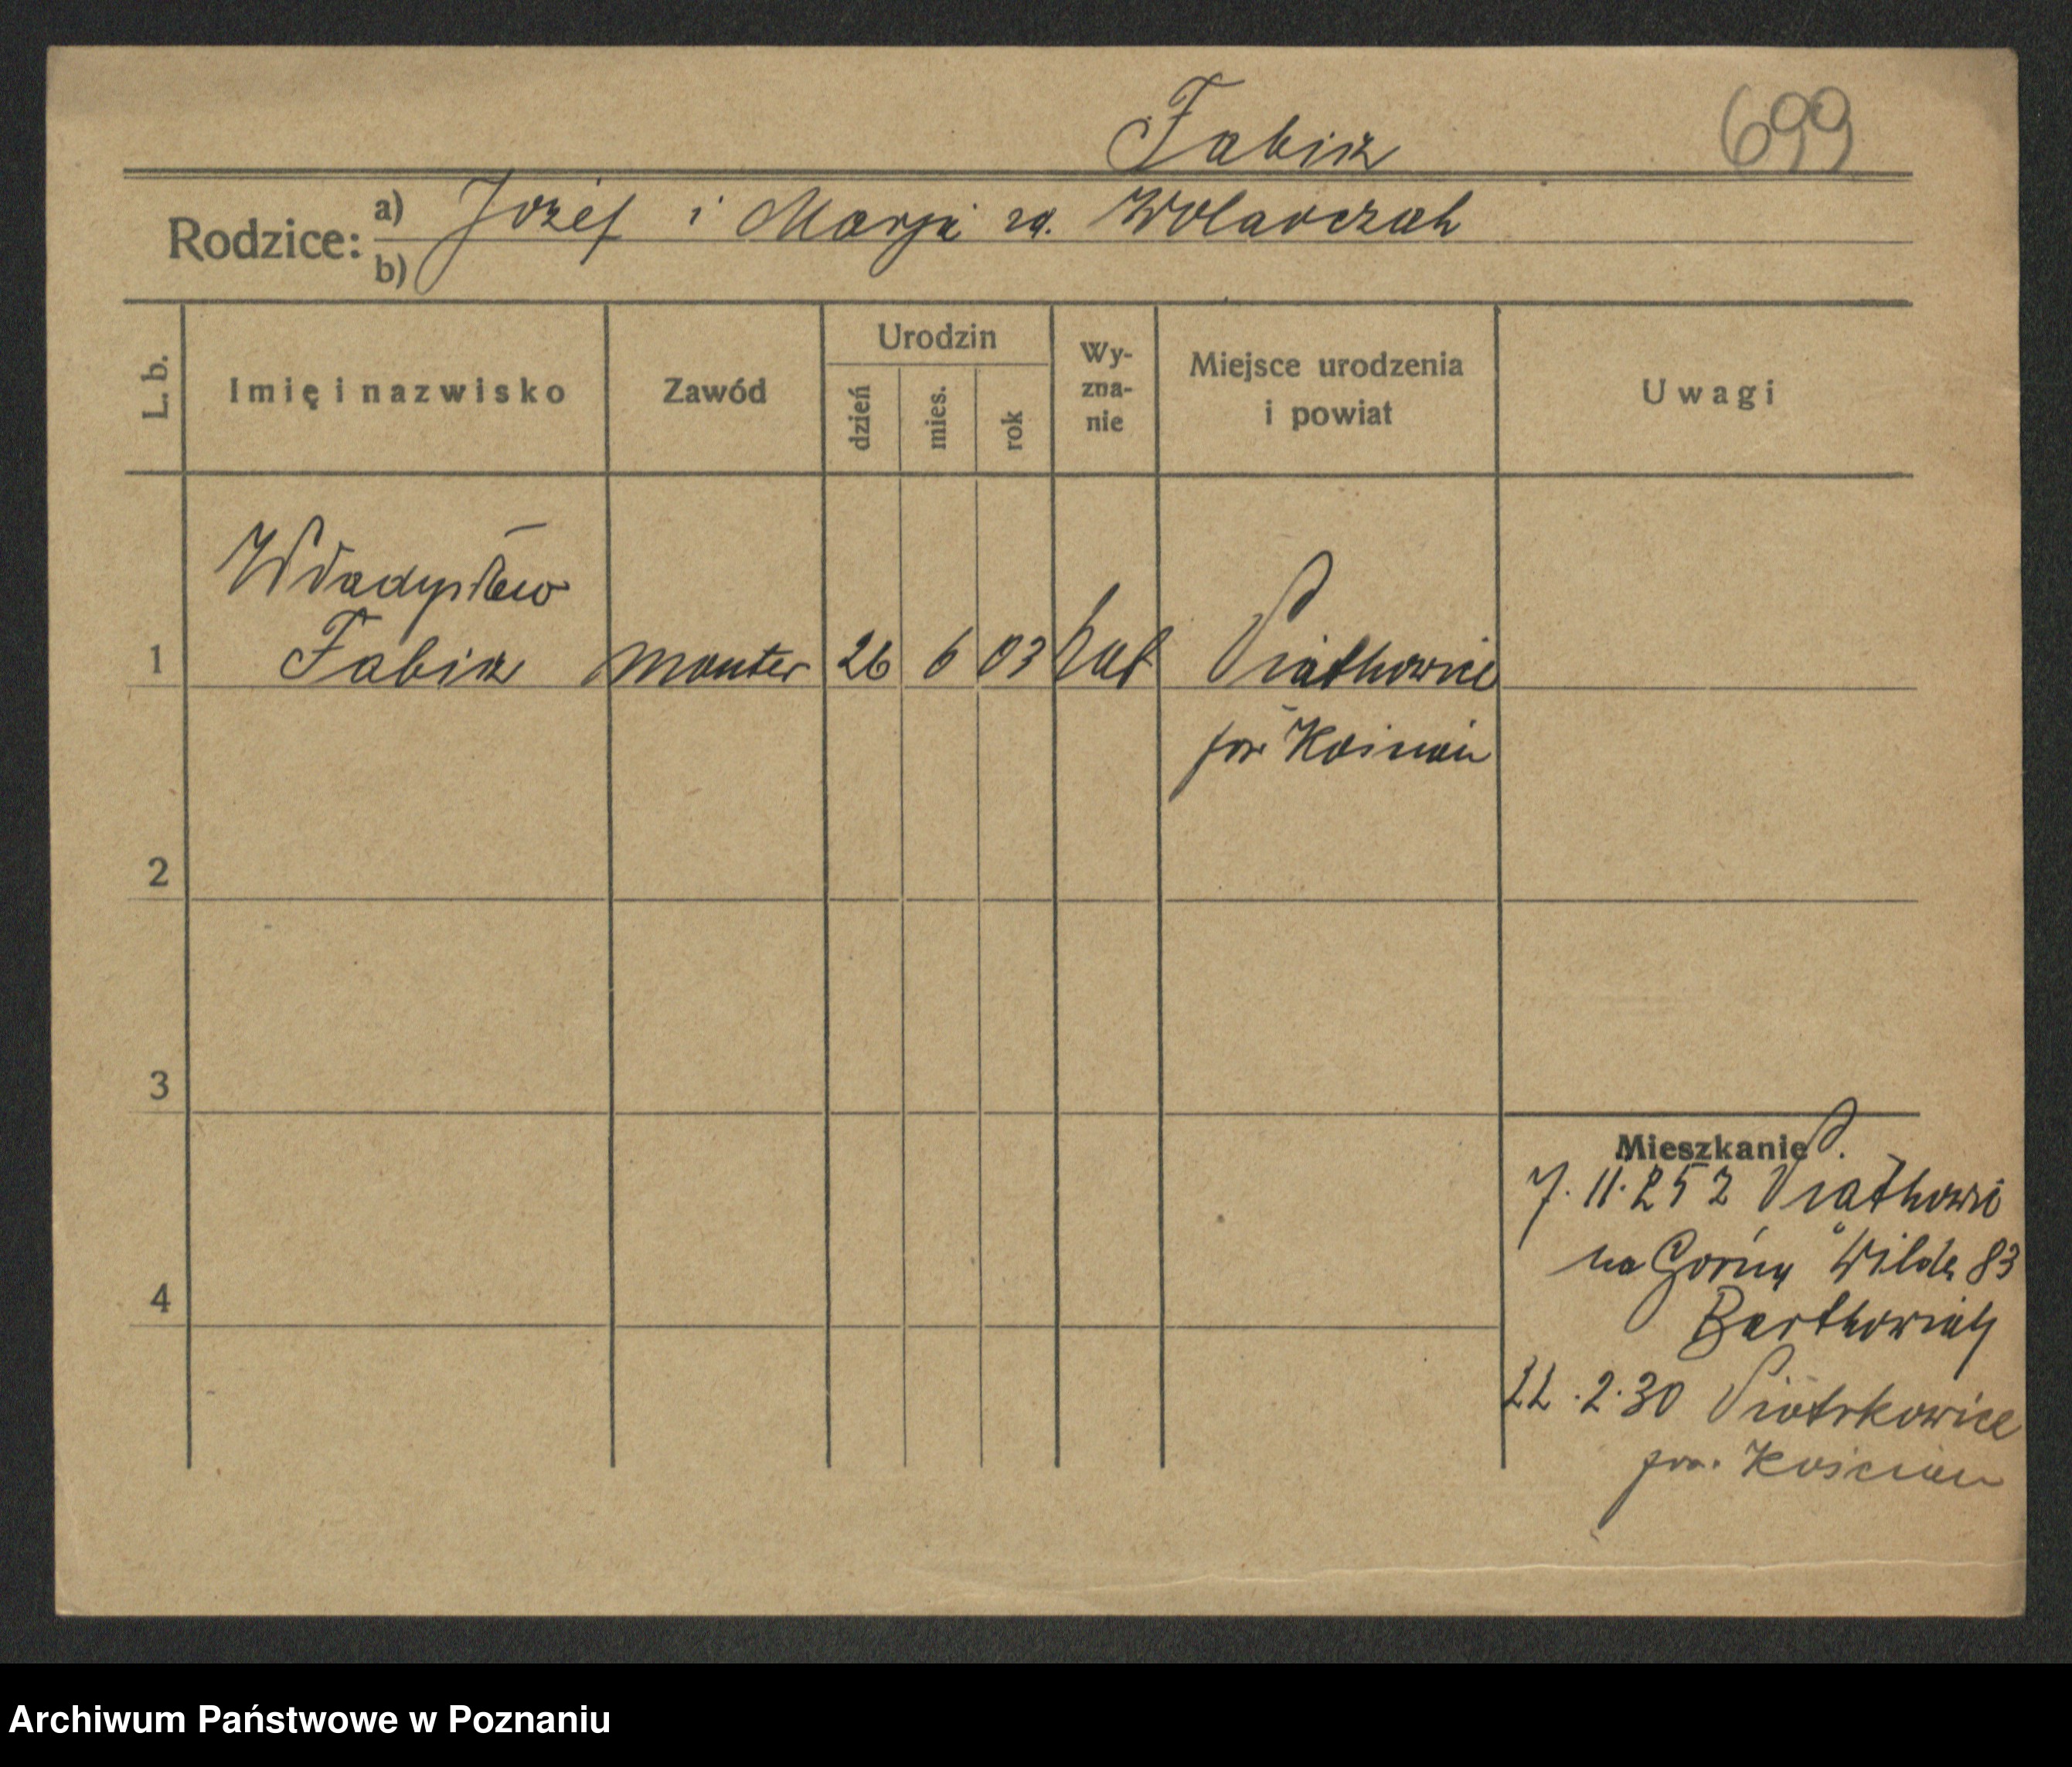 Fabisz
699
Rodzice: a) Józef i Marja za. Wolarczah
b)
L. b.
Imię i nazwisko
Zawód
Urodzin
dzień
mies.
rok
Wy-
zna-
nie
Miejsce urodzenia
i powiat
Uwagi
Władysław
1 Fabisz monter 26 6 03 kat Piatkowice
pow Kościan
2
3
4
Mieszkanie
7. 11. 25 z Piatkowic
na Górną Wildę 83
Bartkowiak
22. 2. 30 Piotrkowice
pow. Kościan
Archiwum Państwowe w Poznaniu